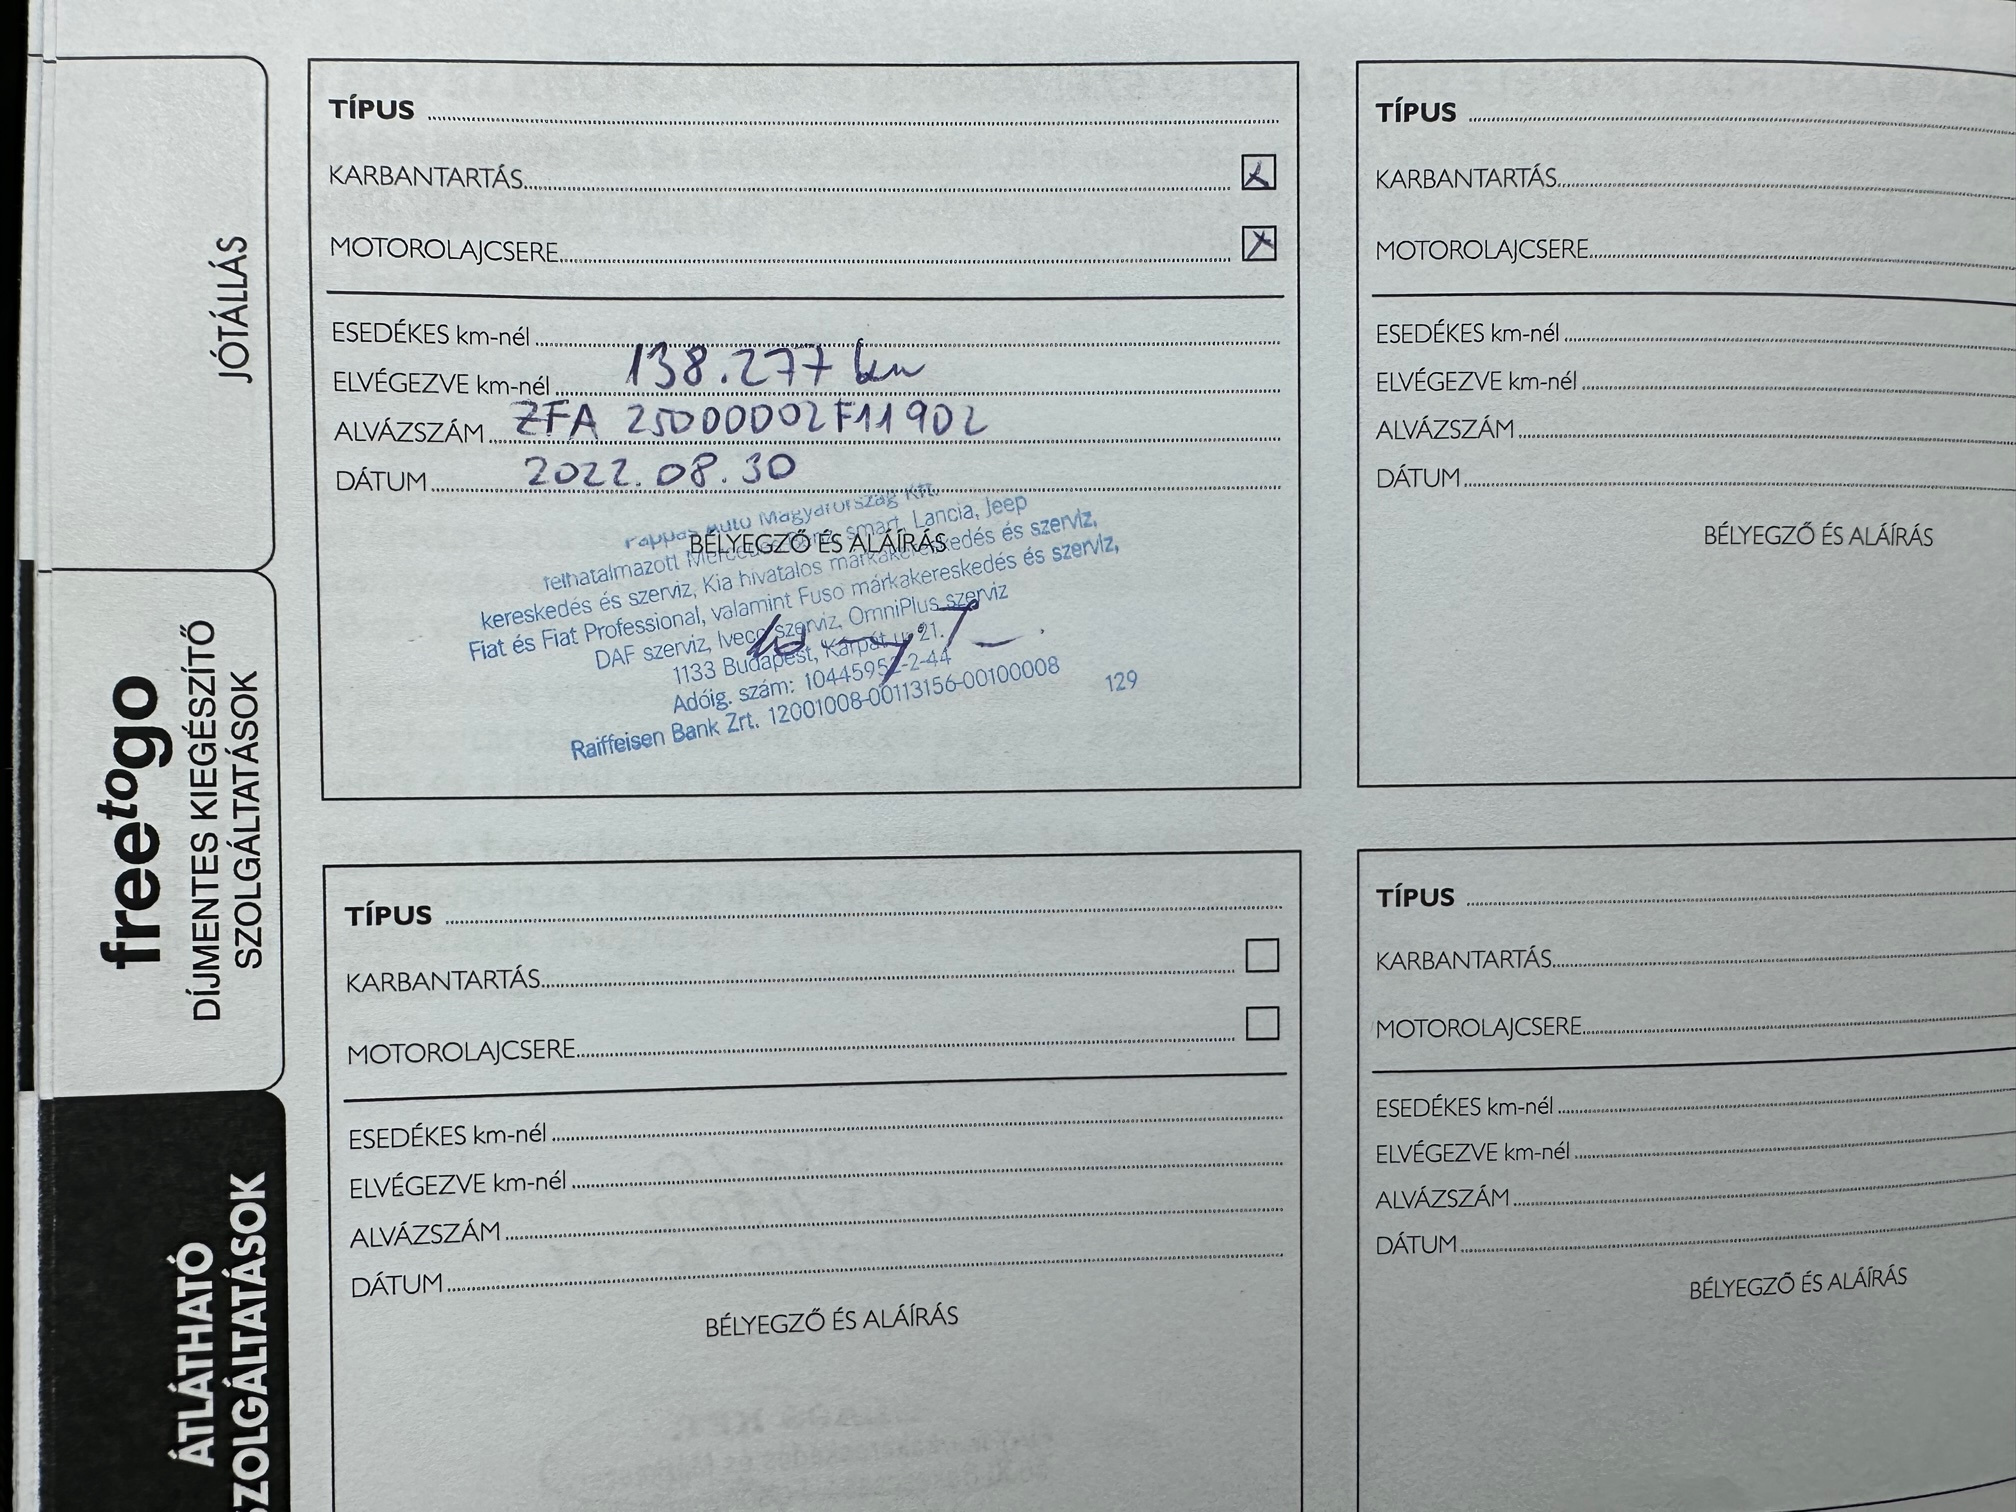 JÓTÁLLÁS
freetogo
DÍJMENTES KIEGÉSZÍTŐ
SZOLGÁLTATÁSOK
ÁTLÁTHATÓ
SZOLGÁLTATÁSOK
TÍPUS
KARBANTARTÁS
MOTOROLAJCSERE
ESEDÉKES km-nél
ELVÉGEZVE km-nél 138.277 km
ALVÁZSZÁM ZFA 25000002F11902
DÁTUM 2022.08.30
BÉLYEGZŐ ÉS ALÁÍRÁS
Pappas Auto Magyarország Kft.
felhatalmazott smart, Lancia, Jeep
kereskedés és szerviz, Kia hivatalos márkakereskedés és szerviz,
Fiat és Fiat Professional, valamint Fuso márkakereskedés és szerviz,
DAF szerviz, Iveco szerviz, OmniPlus szerviz
1133 Budapest, Kárpát u. 21.
Adóig. szám: 10445952-2-44
Raiffeisen Bank Zrt. 12001008-00113156-00100008
129
TÍPUS
KARBANTARTÁS
MOTOROLAJCSERE
ESEDÉKES km-nél
ELVÉGEZVE km-nél
ALVÁZSZÁM
DÁTUM
BÉLYEGZŐ ÉS ALÁÍRÁS
TÍPUS
KARBANTARTÁS
MOTOROLAJCSERE
ESEDÉKES km-nél
ELVÉGEZVE km-nél
ALVÁZSZÁM
DÁTUM
BÉLYEGZŐ ÉS ALÁÍRÁS
TÍPUS
KARBANTARTÁS
MOTOROLAJCSERE
ESEDÉKES km-nél
ELVÉGEZVE km-nél
ALVÁZSZÁM
DÁTUM
BÉLYEGZŐ ÉS ALÁÍRÁS